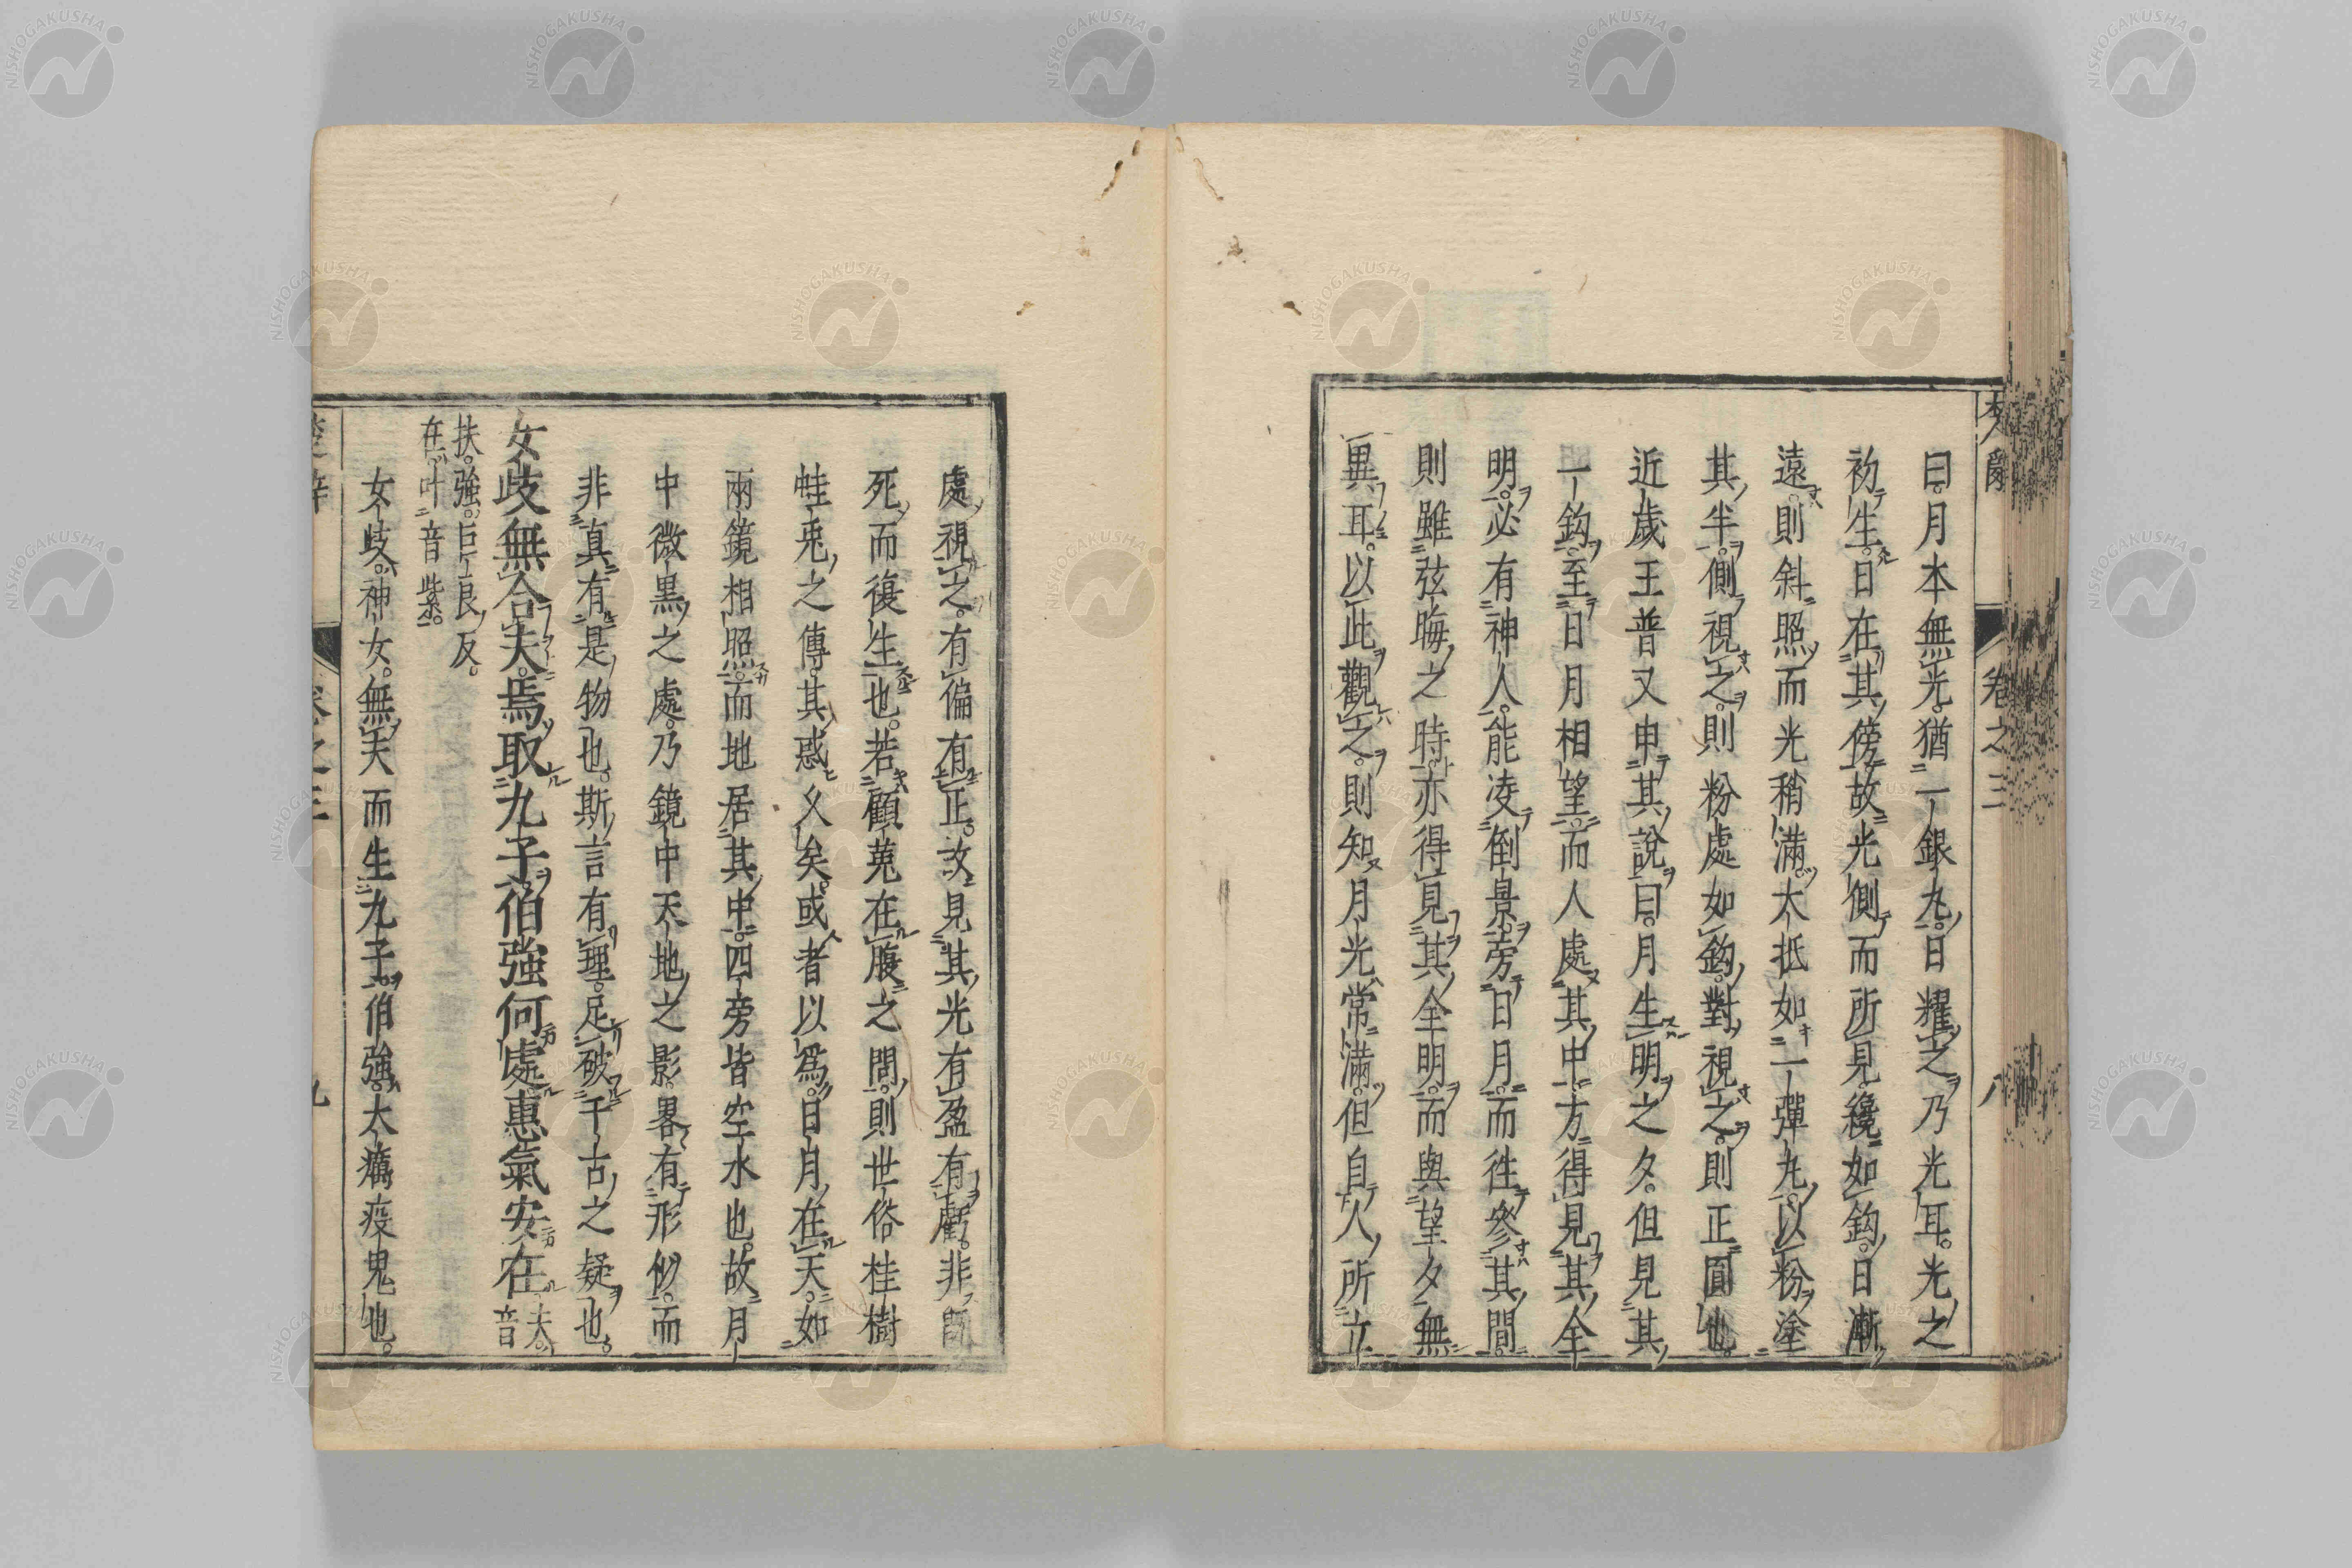 曰月本無光猶一銀丸日耀之乃光耳光之
初生日在其傍故光側而所見纔如鈎日漸
遠則斜照而光稍滿大抵如一彈丸以粉塗
其半側視之則粉處如鈎對視之則正圓也
近歲王普又申其說曰月生明之夕但見其
一鈎至日月相望而人處其中方得見其全
明必有神人能凌倒景旁日月而往參其間
則雖弦晦之時亦得見其全明而與望夕無
異耳以此觀之則知月光常滿但自人所立
卷之三
八
處視之有偏有正故見其光有盈有虧非既
死而復生也若顧菟在腹之問則世俗桂樹
蛙兎之傳其惑久矣或者以爲日月在天如
兩鏡相照而地居其中四旁皆空水也故月
中微黒之處乃鏡中天地之影畧有形似而
非真有是物也斯言有理足破千古之疑也
女歧無合夫焉取九子伯強何處惠氣安在夫音
扶強巨良反
在叶音紫
女歧神女無夫而生九子伯強大癘疫鬼也
NISHOGAKUSHA